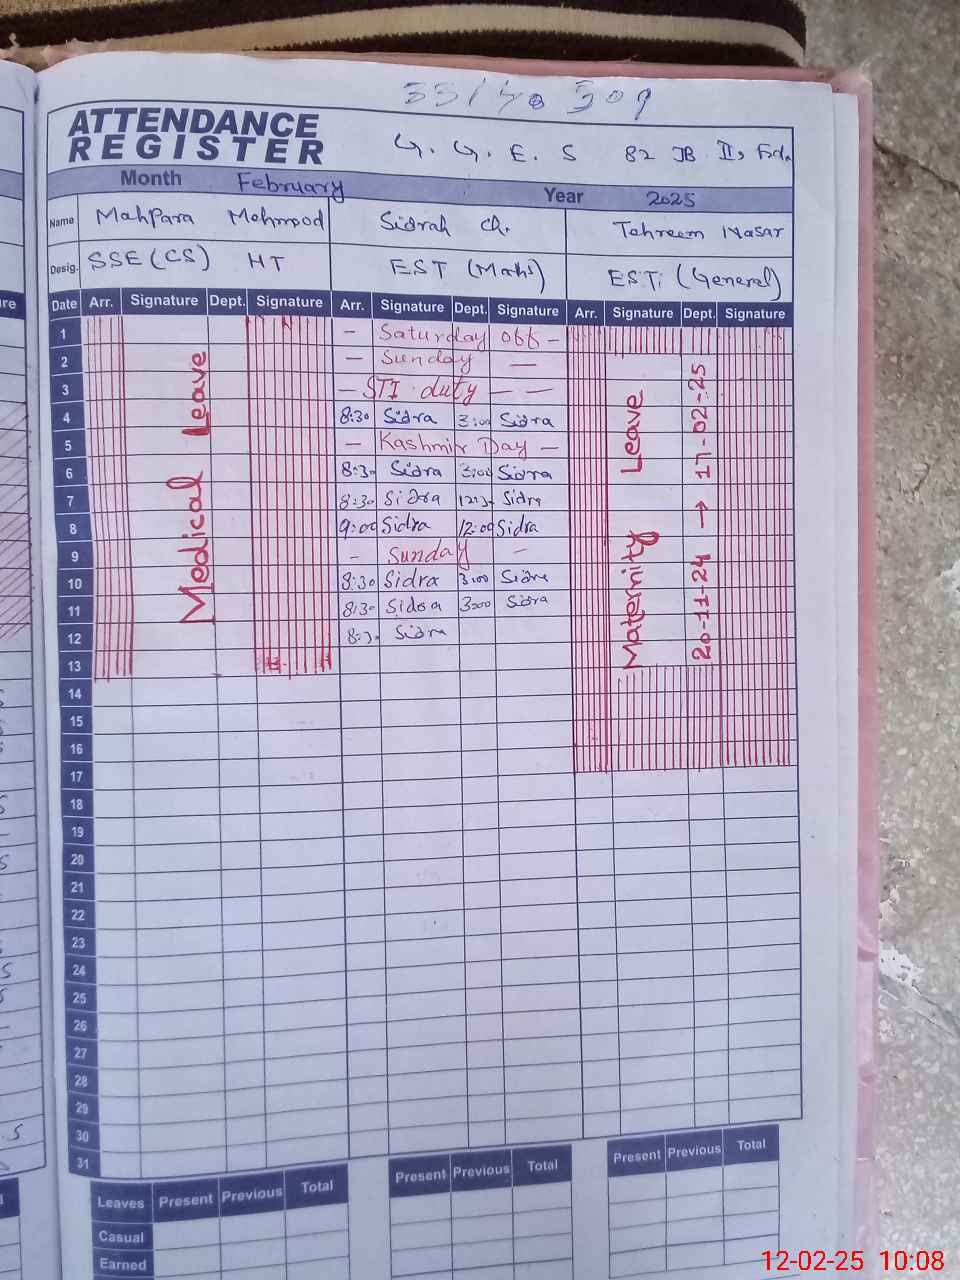 ATTENDANCE
REGISTER
G. G. E. S 82 JB II, Fsd.
Month February Year 2025
Name Mahpara Mehmood Sidrah Ch. Tehreem
Desig. SSE (CS) HT EST (Maths) EST (General)
Date Arr. Signature Dept. Signature Arr. Signature Dept. Signature Arr. Signature Dept. Signature
1 - Saturday off -
2 - Sunday -
3 - STI duty - -
4 8:30 Sidra 3:00 Sidra
5 - Kashmir Day -
6 8:30 Sidra 3:00 Sidra
7 8:30 Sidra 12:30 Sidra
8 9:00 Sidra 12:00 Sidra
9 - Sunday -
10 8:30 Sidra 3:00 Sidra
11 8:30 Sidra 3:00 Sidra
12 8:30 Sidra
13
14
15
16
17
18
19
20
21
22
23
24
25
26
27
28
29
30
31
Medical Leave
Maternity Leave
20-11-24 → 17-02-25
Leaves Present Previous Total Present Previous Total Present Previous Total
Casual
Earned
12-02-25 10:08